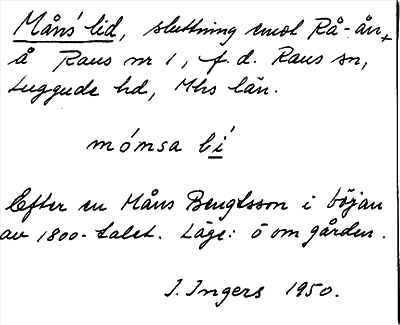 Måns' lid, sluttning emot Rå-ån,
å Raus nr 1, f.d. Raus sn,
Luggude hd, Mhs län.
mómsa lí
Efter en Måns Bengtsson i början
av 1800-talet. Läge: ö om gården.
I. Ingers 1950.